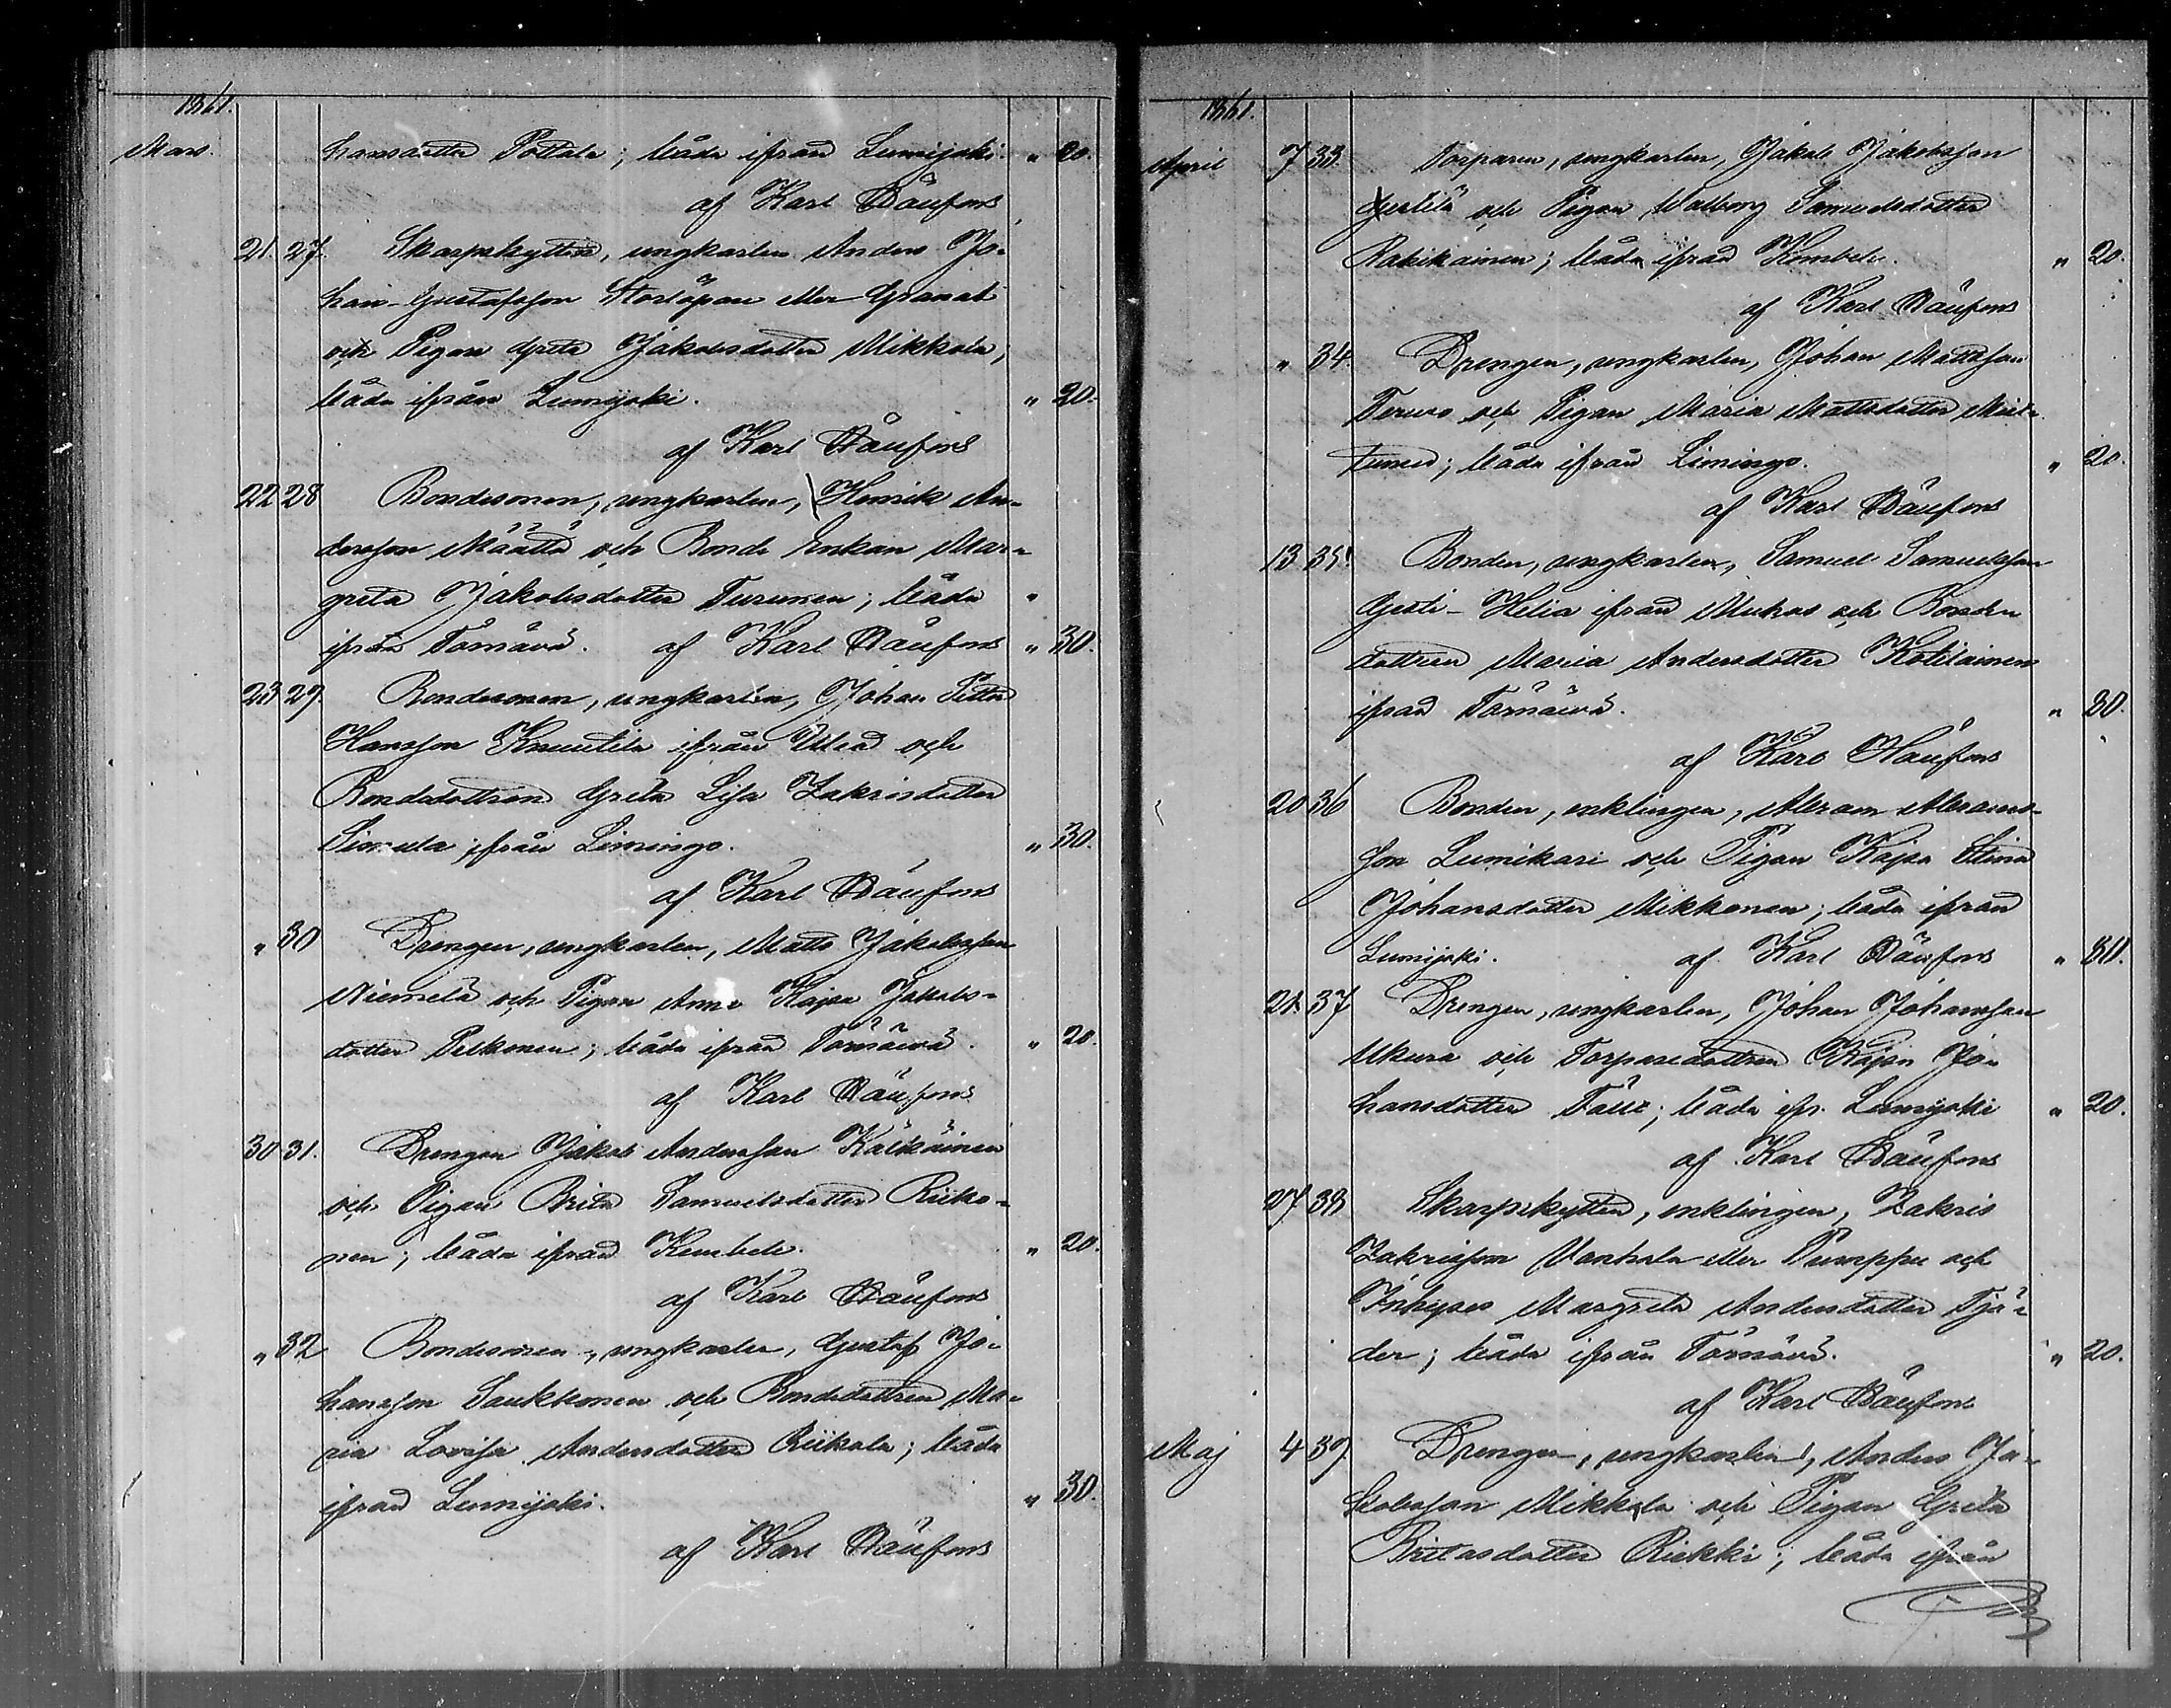 1861.
Mars. hansdotter Pottala; båda ifrån Lumijoki. " 20.
af Karl Bäufors
21. 27. Skarpskytten, ungkarlen Anders Jo-
han Gustafsson Storlöpare eller Granat
och Pigan Greta Jakobsdotter Mikkola;
båda ifrån Lumijoki. " 20.
af Karl Bäufors
22 28 Bondesonen, ungkarlen, Henrik An-
dersson Määttä och Bonde Enkan Mar-
greta Jakobsdotter Turunen; båda "
ifrån Törnävä. af Karl Bäufors " 30.
23 29. Bondesonen, ungkarlen, Johan Petter
Hansson Knuutila ifrån Uleå och
Bondedottren Greta Lisa Zakrisdotter
Simula ifrån Limingo. " 30.
af Karl Bäufors
" 30 Drengen, ungkarlen, Matts Jakobsson
Niemelä och Pigan Anna Kajsa Jakobs-
dotter Pelkonen; båda ifrån Törnävä. " 20.
af Karl Bäufors
30 31. Drengen Jakob Andersson Kälkäinen
och Pigan Brita Samuelsdotter Riiko-
nen; båda ifrån Kembele. " 20.
af Karl Bäufors
" 32 Bondesonen, ungkarlen, Gustaf Jo-
hansson Saukkonen och Bondedottren Ma-
ria Lovisa Andersdotter Riikola; båda
ifrån Lumijoki. " 30.
af Karl Bäufors
1861.
April 7 33. Torparen, ungkarlen, Jakob Jakobsson
och Pigan Walborg Samuelsdotter
Ratikainen; båda ifrån Kembele. " 20.
af Karl Bäufors
" 34. Drengen, ungkarlen, Johan Mattsson
Tervo och Pigan Maria Mattsdotter
båda ifrån Limingo. " 20.
af Karl Bäufors
13 35. Bonden, ungkarlen, Samuel Samuelsson
Gesti-Helia ifrån Muhos och Bonde
dottren Maria Andersdotter Kotilainen
ifrån Törnävä. " 30.
af Karl Bäufors
20 36 Bonden, enklingen, Abram Abrams-
son Lumikari och Pigan Kajsa Stina
Johansdotter Mikkonen; båda ifrån
Lumijoki. af Karl Bäufors " 30.
21. 37 Drengen, ungkarlen, Johan Johansson
Ukura och Torparedottren Kajsa Jo-
hansdotter båda ifr. Lumijoki " 20.
af Karl Bäufors
27 38 Skarpskytten, enklingen, Zakris
Zakrisson Vanhala eller Pumppu och
Inhyses Margreta Andersdotter Tjä-
der; båda ifrån Törnävä. " 20.
af Karl Bäufors
Maj 4 39. Drengen, ungkarlen, Anders Ja-
kobsson Mikkola och Pigan Greta
Britasdotter Riekki; båda ifrån